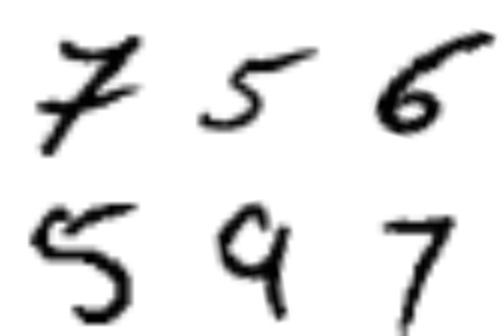 7 5 6
5 9 7